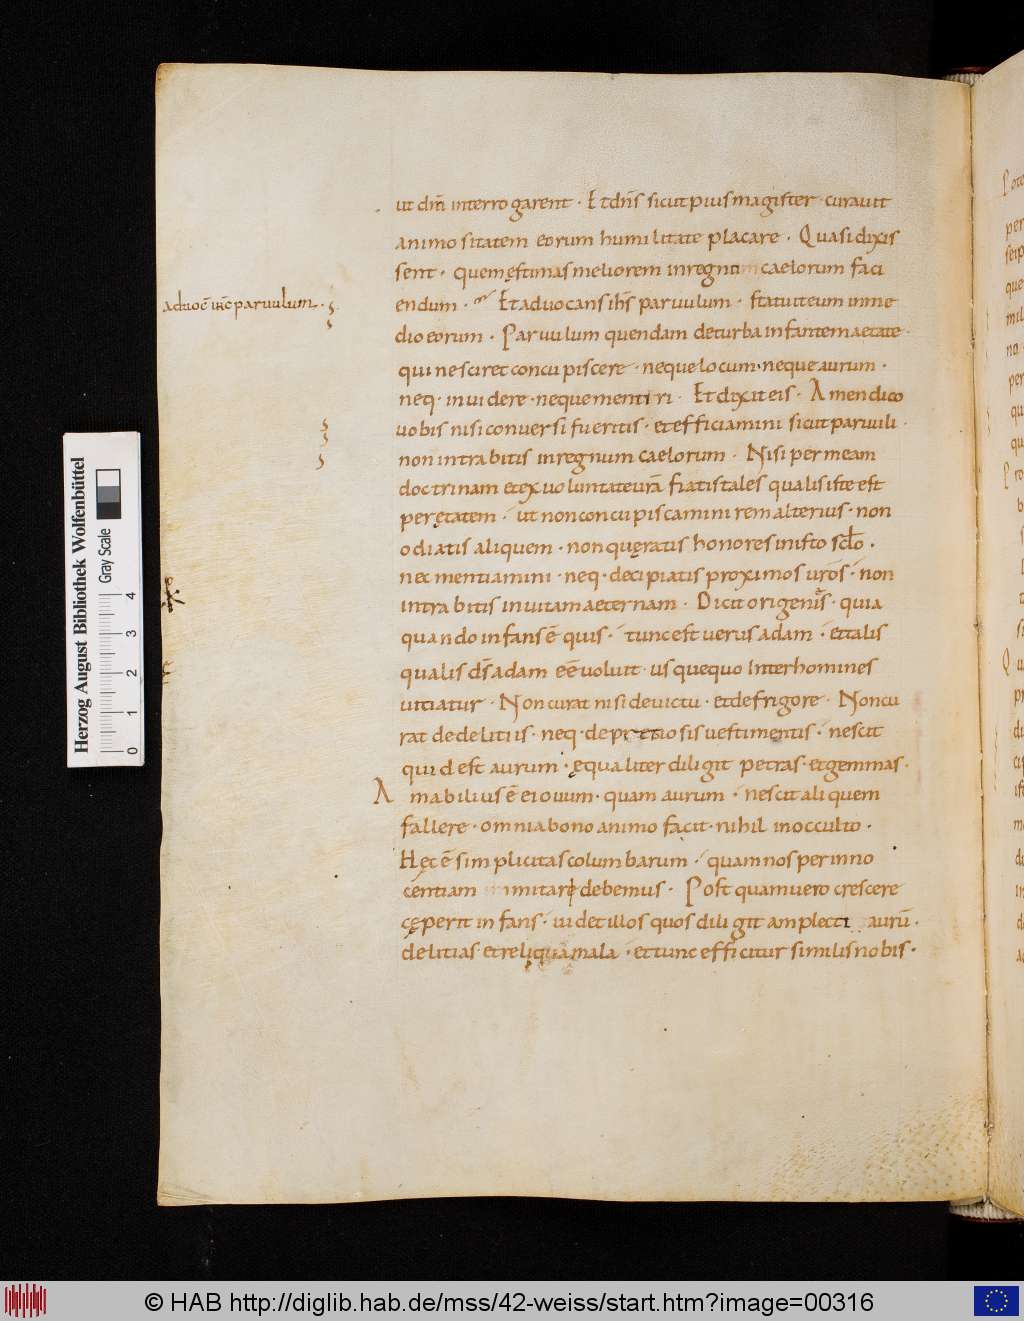 ut dn̄m interrogarent · Et dn̄s sicut pius magister curauit
animositatem eorum humilitate placare · Quasi dixis
sent · quem ęstimas meliorem in regnum caelorum faci
endum · Et aduocans ih̄s paruulum · statuit eum in me
aduoc̄ ih̄c paruulum ·
dio eorum · Paruulum quendam de turba infantem aetate ·
qui nesciret concupiscere · neque locum · neque aurum ·
neq· inuidere · neque mentiri · Et dixit eis · Amen dico
uobis nisi conuersi fueritis · et efficiamini sicut paruuli ·
non intrabitis in regnum caelorum · Nisi per meam
doctrinam et ex uoluntate ur̄a fiatis tales qualis iste est
per ętatem · ut non concupiscamini rem alterius · non
odiatis aliquem · non quęratis honores in isto sc̄lo ·
nec mentiamini · neq· decipiatis proximos ur̄os · non
intrabitis in uitam aeternam · Dicit origenis · quia
quando infans ē quis · tunc est uerus adam · et talis
qualis d̄s adam eē uoluit · usquequo inter homines
uitiatur · Non curat nisi de uictu · et de frigore · Non cu
rat de delitiis · neq· de pretiosis uestimentis · nescit
quid est aurum · ęqualiter diligit petras · et gemmas ·
Amabilius ē ei ouum · quam aurum · nescit aliquem
fallere · omnia bono animo facit · nihil in occulto ·
Hęc ē simplicitas columbarum · quam nos per inno
centiam imitari debemus · Postquam uero crescere
cęperit infans · uidet illos quos diligit amplecti aurū ·
delitias et reliqua mala · et tunc efficitur similis nobis ·
Herzog August Bibliothek Wolfenbüttel
Gray Scale
0 1 2 3 4
© HAB http://diglib.hab.de/mss/42-weiss/start.htm?image=00316